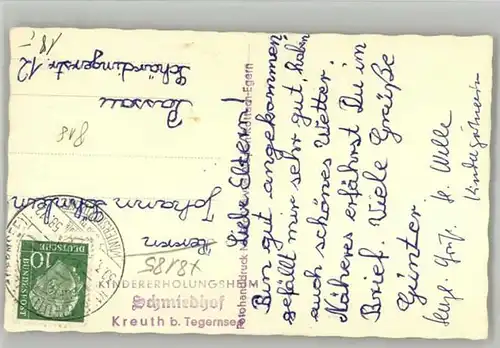 Liebe Eltern!
Bin gut angekommen
gefällt mir sehr gut, haben
auch schönes Wetter.
Näheres erfährst Du im
Brief. Viele Grüße
Günter
Herzl. Grüße Sr. Wille
Kindergärtnerin
Herrn
Johann
Passau
Schärdingerstr. 12
818
18,-
+8185
KINDERERHOLUNGSHEIM
Schmiedhof
Kreuth b. Tegernsee
Fotohandldruck
Rottach-Egern
10
DEUTSCHE
BUNDESPOST